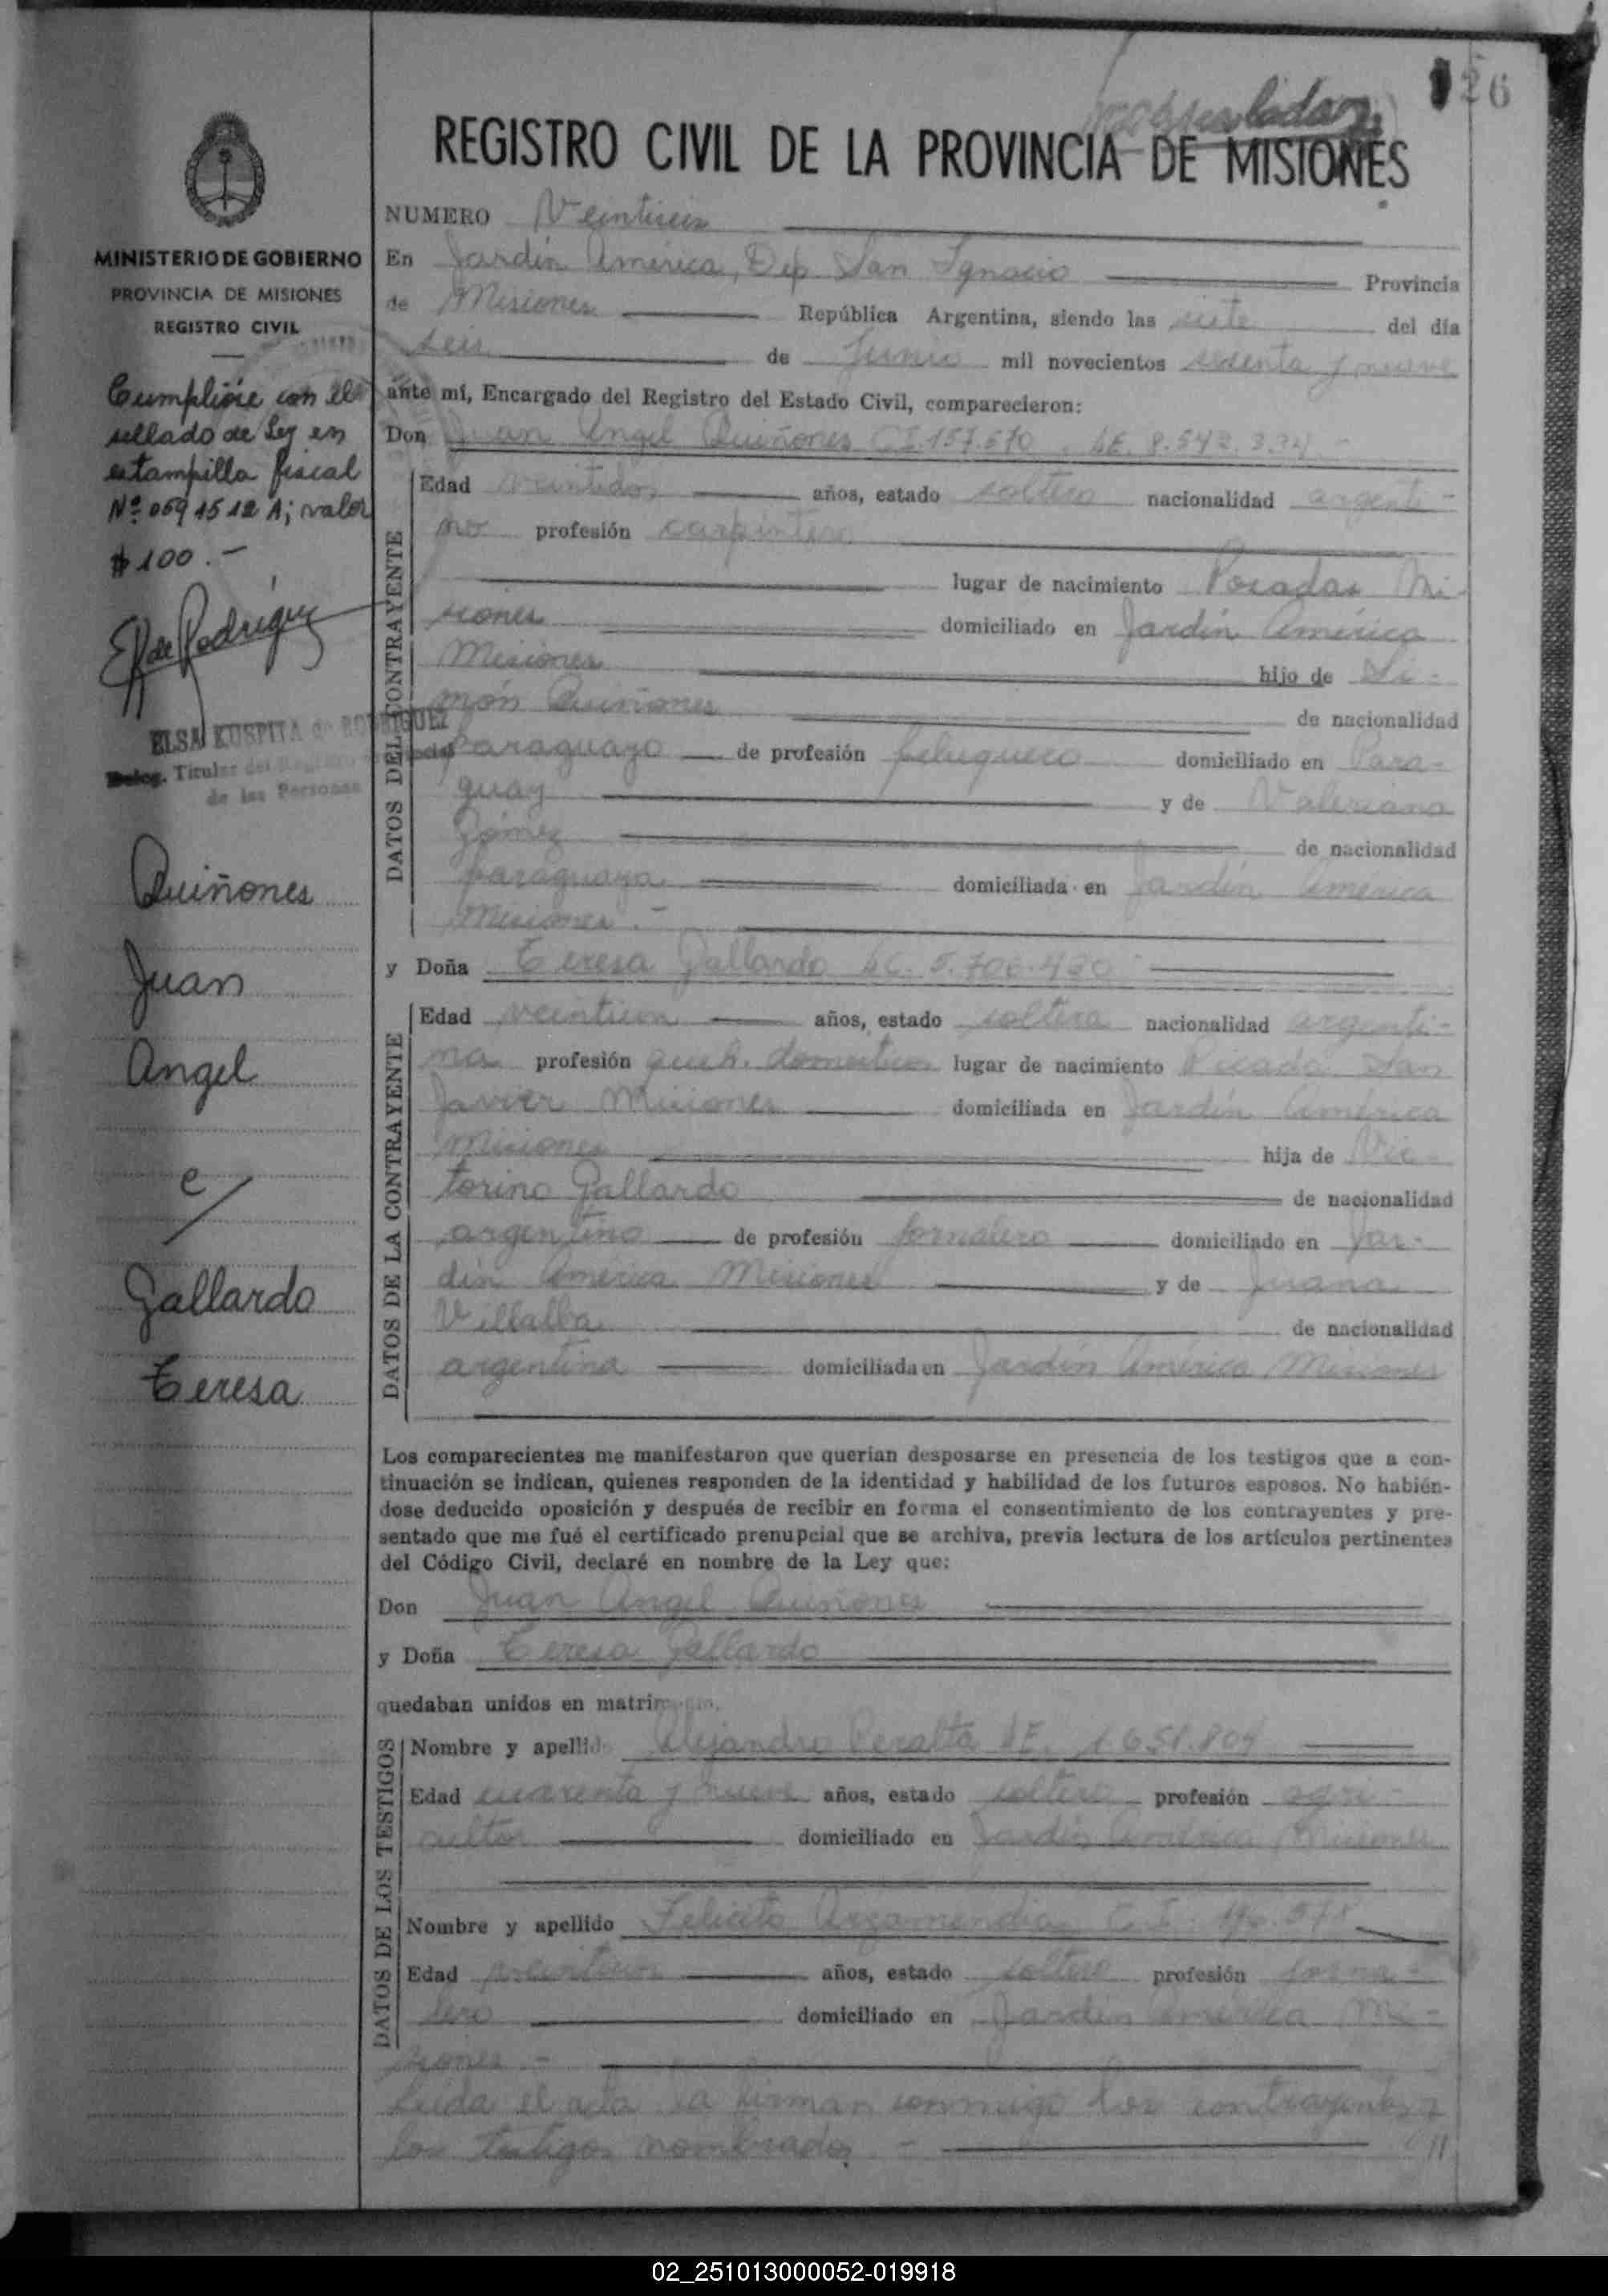 126
REGISTRO CIVIL DE LA PROVINCIA DE MISIONES
MINISTERIO DE GOBIERNO
PROVINCIA DE MISIONES
REGISTRO CIVIL
Cumplióse con el
sellado de Ley en
estampilla fiscal
Nº 0691512 A; valor
$ 100.-
ERde Rodríguez
ELSA KUSPITA de RODRIGUEZ
Deleg. Titular del Registro Provincial
de las Personas
Quiñones
Juan
Angel
c/
Gallardo
Teresa
NUMERO Veintiseis
En Jardín América, Dep. San Ignacio Provincia
de Misiones República Argentina, siendo las siete del día
seis de Junio mil novecientos sesenta y nueve
ante mí, Encargado del Registro del Estado Civil, comparecieron:
Don Juan Angel Quiñones CI. 157.570 . LE. 8.542.334
DATOS DEL CONTRAYENTE
Edad veintidos años, estado soltero nacionalidad argenti-
no profesión carpintero
lugar de nacimiento Posadas Mi-
siones domiciliado en Jardín América
Misiones hijo de Si-
món Quiñones de nacionalidad
paraguayo de profesión peluquero domiciliado en Para-
guay y de Valeriana
Gómez de nacionalidad
paraguaya domiciliada en Jardín América
Misiones.-
y Doña Teresa Gallardo LC. 5.706.430
DATOS DE LA CONTRAYENTE
Edad años, estado soltera nacionalidad argenti-
na profesión queh. domesticos lugar de nacimiento Picada San
Javier Misiones domiciliada en Jardín América
Misiones hija de Vic-
torino Gallardo de nacionalidad
argentino de profesión jornalero domiciliado en Jar-
dín América Misiones y de Juana
Villalba de nacionalidad
argentina domiciliada en Jardín América, Misiones
Los comparecientes me manifestaron que querían desposarse en presencia de los testigos que a con-
tinuación se indican, quienes responden de la identidad y habilidad de los futuros esposos. No habién-
dose deducido oposición y después de recibir en forma el consentimiento de los contrayentes y pre-
sentado que me fué el certificado prenupcial que se archiva, previa lectura de los artículos pertinentes
del Código Civil, declaré en nombre de la Ley que:
Don Juan Angel Quiñones
y Doña Teresa Gallardo
quedaban unidos en matrimonio.
DATOS DE LOS TESTIGOS
Nombre y apellido Alejandro Peralta LE. 1.651.804
Edad cuarenta y nueve años, estado soltero profesión agri-
cultor domiciliado en Jardín América, Misiones
Nombre y apellido Felicito Arzamendia C.I.
Edad años, estado soltero profesión jorna-
lero domiciliado en Jardín América Mi-
siones.-
Leida el acta la firman conmigo los contrayentes y
los testigos nombrados.-
02_251013000052-019918